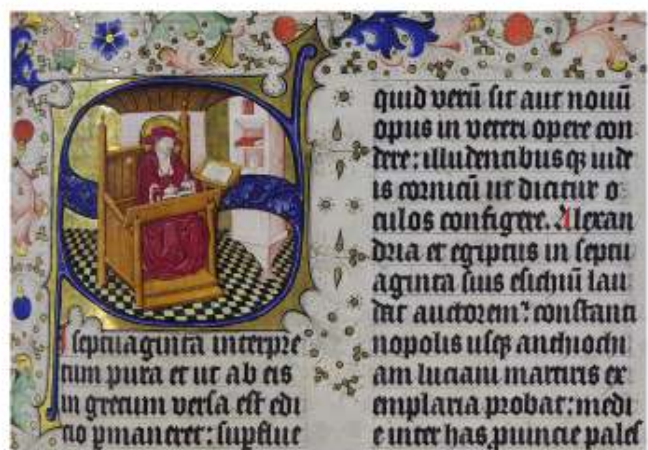 I septuaginta interpre
tum pura et ut ab eis
in grecum versa est edi
tio pmaneret: supflue
quid verū sit aut nouū
opus in veteri opere con
dere: illudentibusqꝫ iude
is cornicū ut dicitur o
culos configere. Alexan
dria et egiptus in septu
aginta suis esichiū lau
dat auctorem: constanti
nopolis usqꝫ anthiochi
am luciani martiris ex
emplaria probat: medi
e inter has puincie pales